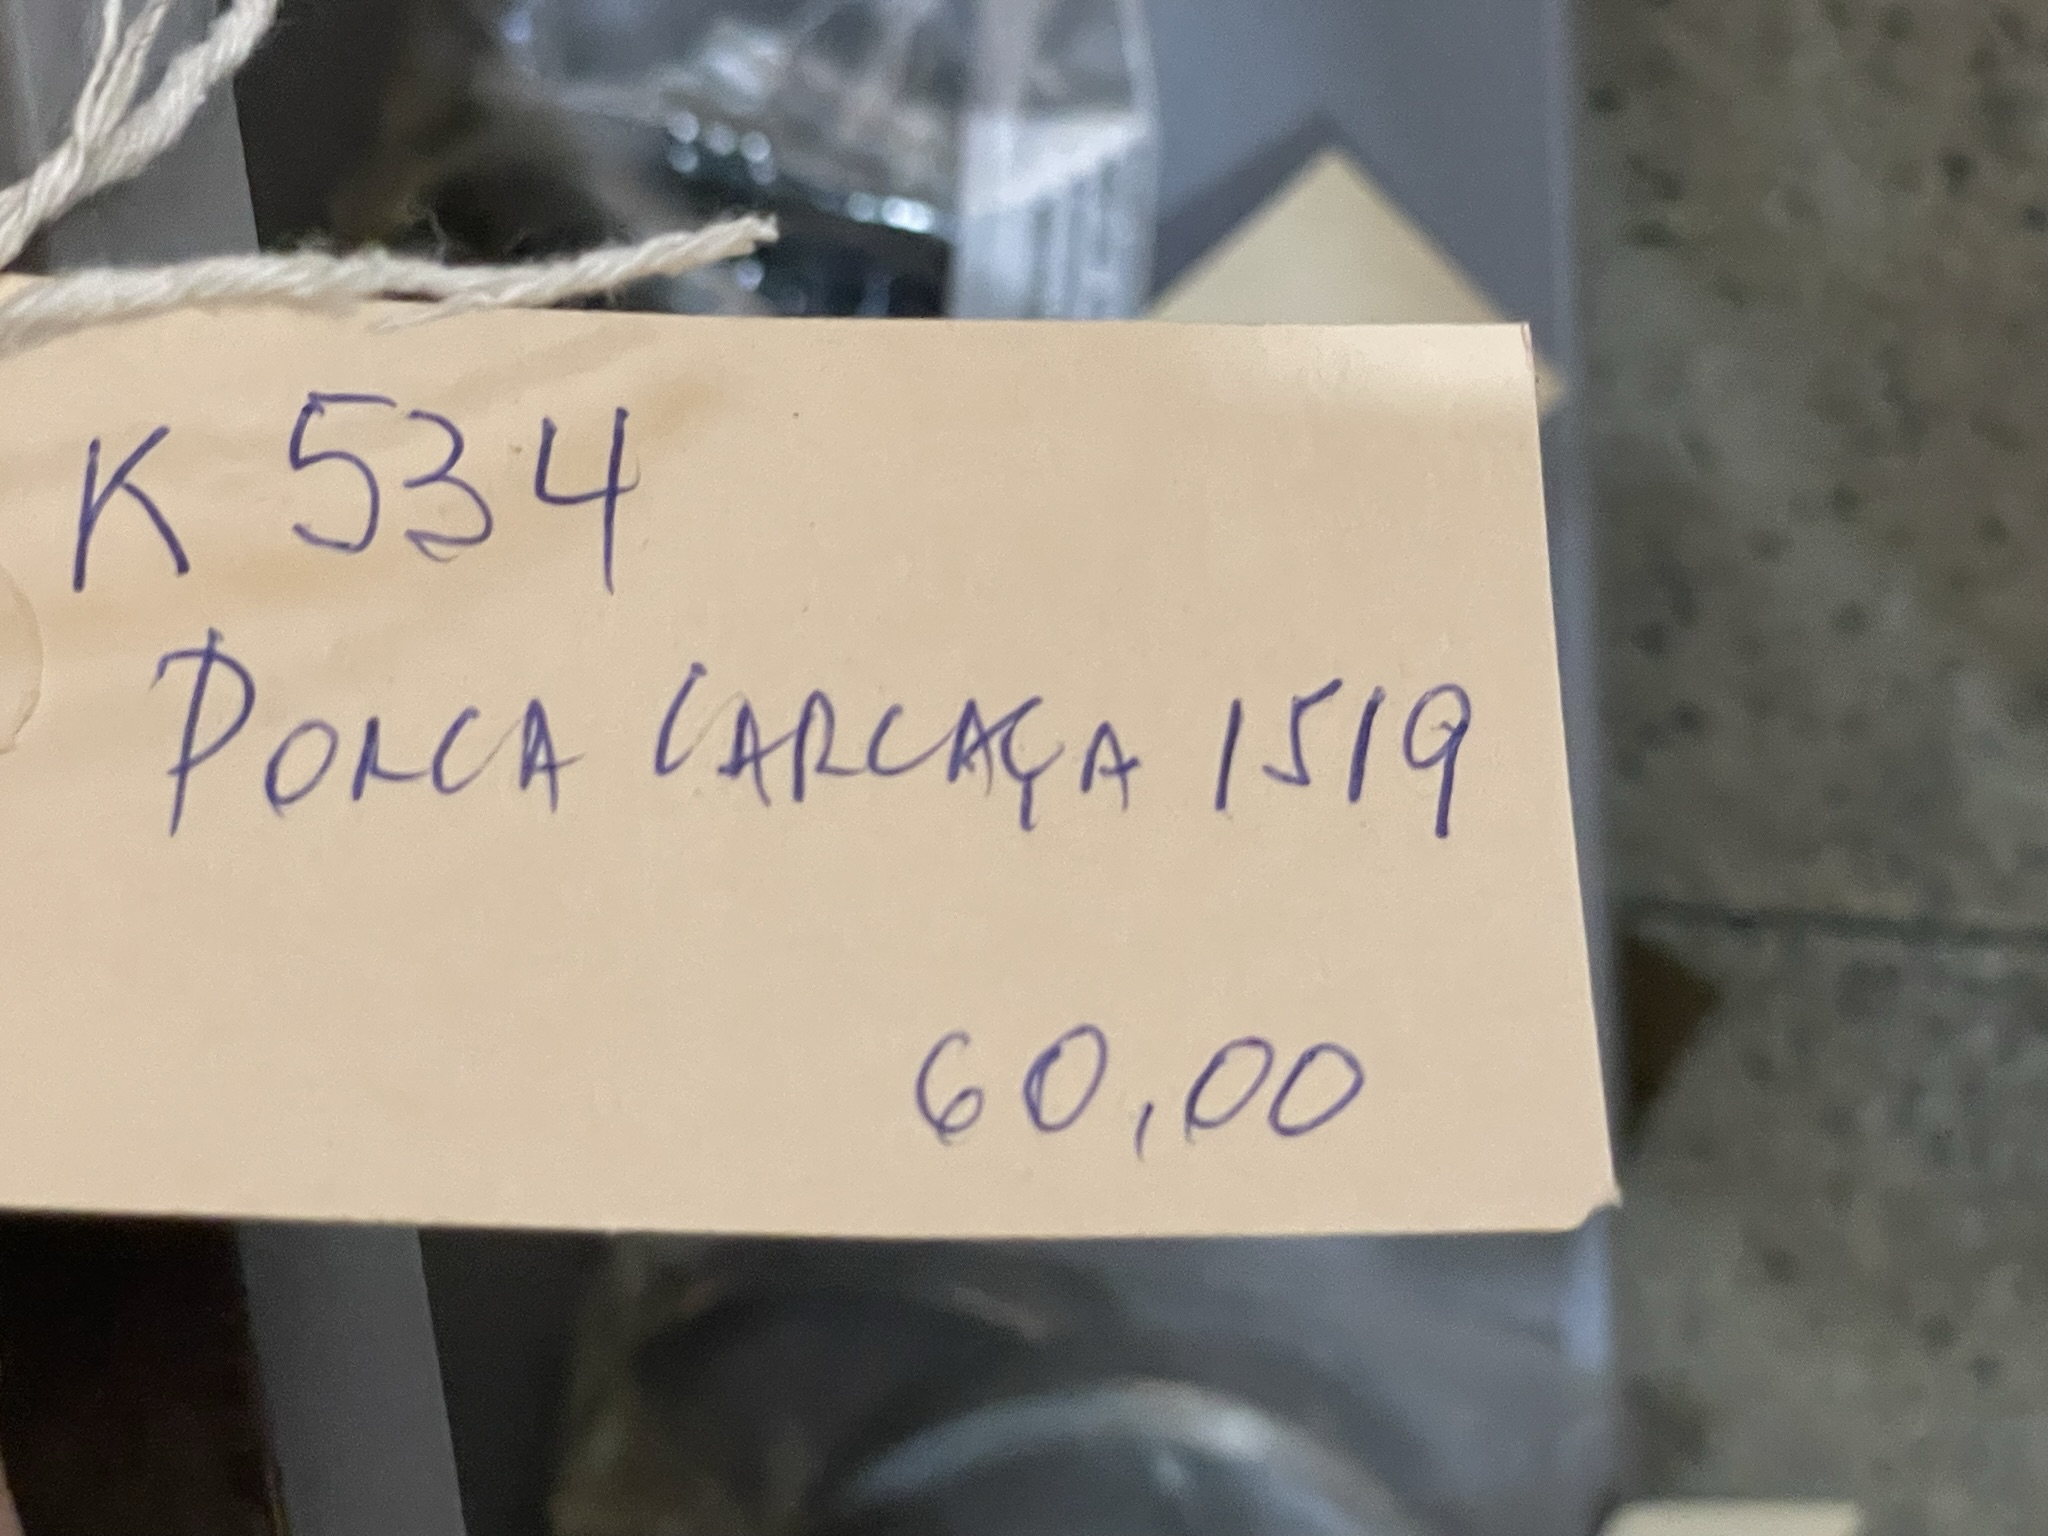 K 534
PORCA CARCAÇA 1519
60,00